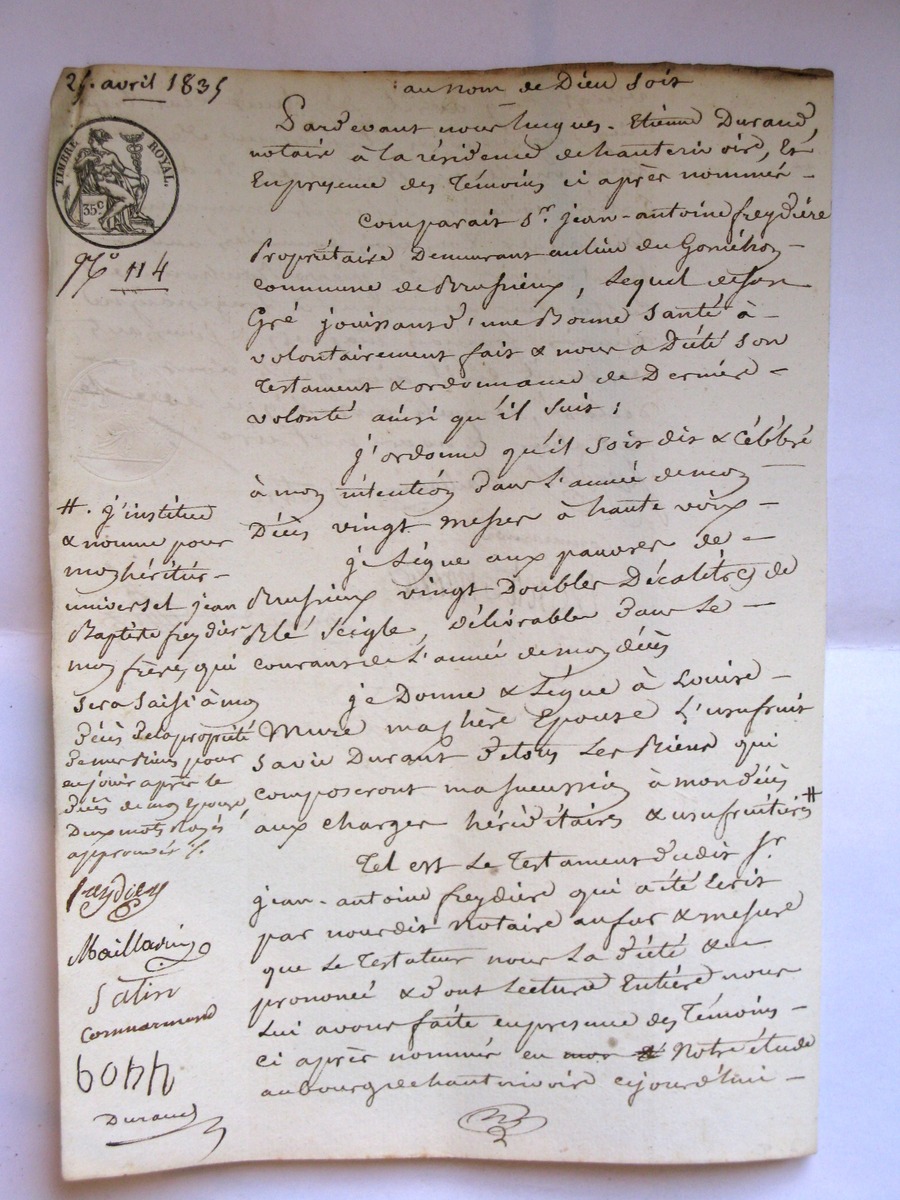 25. avril 1835
TIMBRE ROYAL.
35 c
N.o 114
au nom de Dieu soit
Pardevant nous hugues-Etienne Durand,
notaire à la résidence de hauterivoire, Et
En presence des Témoins ci après nommés
Comparait Sr. jean-antoine freydiére
Propriétaire Demeurant au lieu du
commune de Brussieux, Lequel de son
Gré jouissant d'une Bonne Santé à
volontairement fait & nous a Dicté Son
Testament & ordonnance de Dernière
volonté ainsi qu'il suit;
j'ordonne qu'il soit dit & Célébré
à mon intention dans L'année de mon
Décès vingt messes à haute voix
je Légue aux pauvres de
Brussieux vingt Doubles Décalitres de
Blé Seigle, Délivrables dans Le
courant de L'année de mon décès
je Donne & Légue à Louise
Mure ma chère Epouse L'usufruit
sa vie Durant de tous Les Biens qui
composeront ma succession à mon décès
aux charges héréditaires & usufruitières #
Tel est Le Testament dudit Sr.
jean-antoine freydiére qui a été Ecrit
par nous dit notaire au fur & mesure
que Le Testateur nous La dicté &
prononcé & dont Lecture Entière nous
Lui avons faite en presence des Témoins
ci après nommés en Notre étude
au bourg de hauterivoire cejourd'hui
#. j'institue
& nomme pour
mon héritier
universel jean
Baptiste freydier
mon frère, qui
sera saisi à mon
décès de la propriété
de mes Biens pour
en jouir après le
décès de mon Epouse,
Deux mots Rayés
approuvés
freydier
Maillavin
Satin
Commarmond
Durand